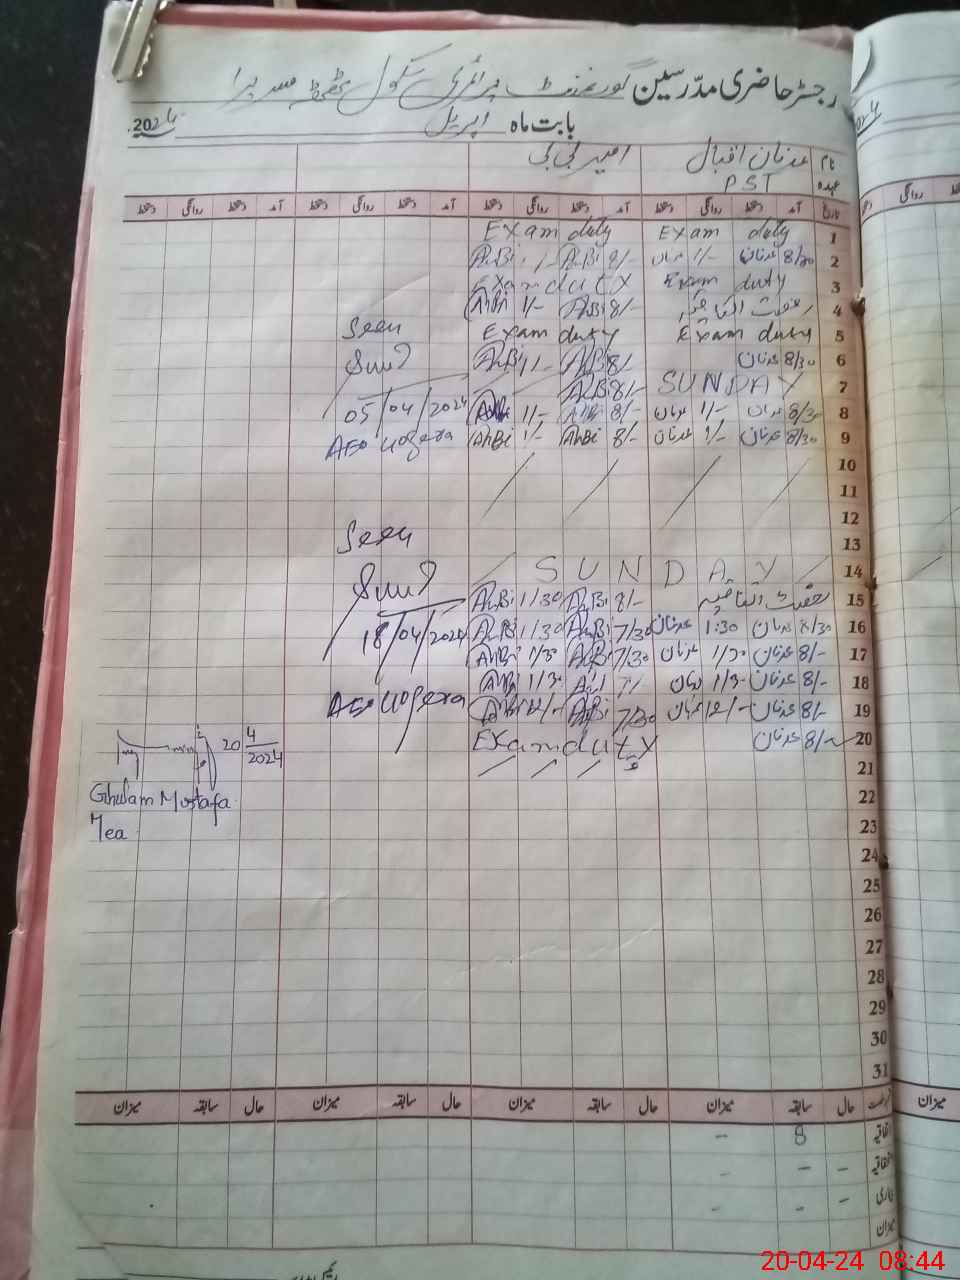 رجسٹر حاضری مدرسین گورنمنٹ پرائمری سکول
بابت ماہ اپریل 2024
نام عدنان اقبال امیر بی بی
عہدہ PST
تاریخ آمد دستخط روانگی دستخط آمد دستخط روانگی دستخط آمد دستخط روانگی دستخط آمد دستخط روانگی دستخط
1 Exam duty Exam duty
2 8/30 عدنان 1/- عدنان 8/- AhBi 1/- AhBi
3 Exam duty Exam duty
4 رخصت اتفاقیہ 8/- AhBi 1/- AhBi
5 Exam duty Exam duty Seen
6 8/30 عدنان 8/- AhBi 1/- AhBi
7 SUNDAY 8/- AhBi
8 8/30 عدنان 1/- عدنان 8/- AhBi 1/- AhBi 05/04/2024
9 8/30 عدنان 1/- عدنان 8/- AhBi 1/- AhBi AEO Uogera
10
11
12
13 Seen
14 SUNDAY
15 رخصت اتفاقیہ 8/- AhBi 1/30 AhBi
16 8/30 عدنان 1:30 عدنان 7/30 AhBi 1/30 AhBi 18/04/2024
17 8/- عدنان 1/30 عدنان 7/30 AhBi 1/30 AhBi
18 8/- عدنان 1/30 عدنان 1/30 AhBi AEO Uogera
19 8/- عدنان 12/- عدنان 7/30 AhBi 12/- AhBi
20 8/- عدنان Exam duty 20 4/2024
21
22 Ghulam Mustafa
23 Mea
24
25
26
27
28
29
30
31
رخصت حال سابقہ میزان حال سابقہ میزان حال سابقہ میزان حال سابقہ میزان
اتفاقیہ 8 -
- - -
بیماری - -
میزان
میزان
20-04-24 08:44